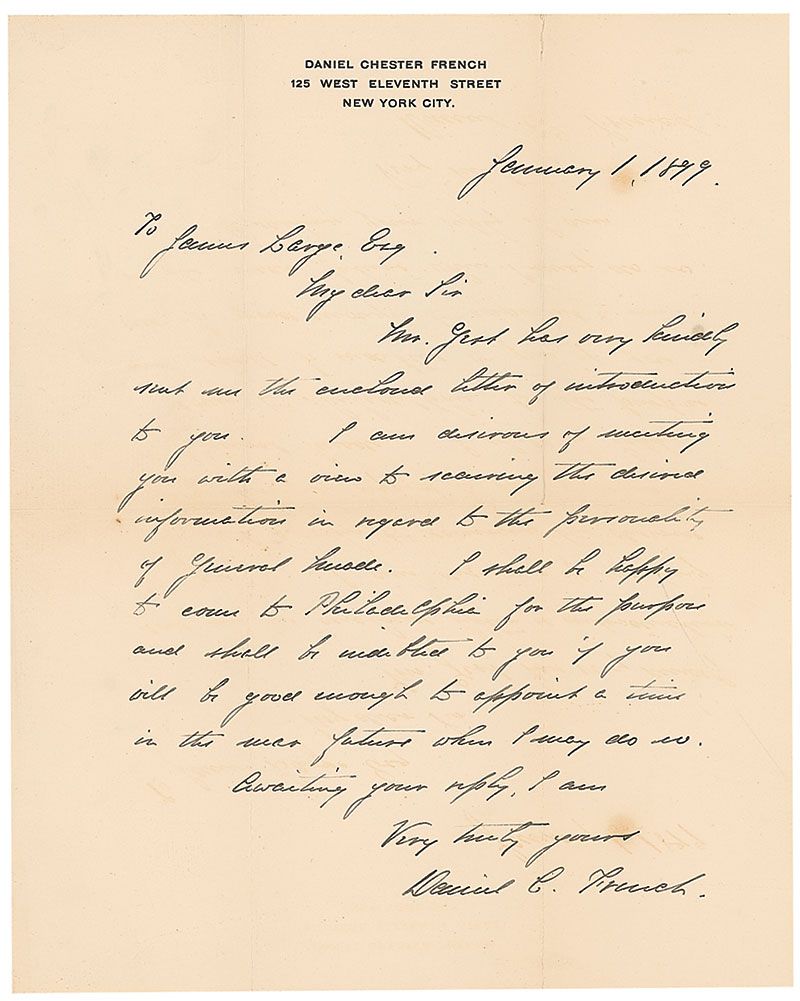 DANIEL CHESTER FRENCH
125 WEST ELEVENTH STREET
NEW YORK CITY.
January 1, 1899.
To
James Large, Esq.
My dear Sir
Mr. Gest has very kindly
sent me the enclosed letter of introduction
to you. I am desirous of meeting
you with a view to securing the desired
information in regard to the personality
of General Meade. I shall be happy
to come to Philadelphia for the purpose
and shall be indebted to you if you
will be good enough to appoint a time
in the near future when I may do so.
Awaiting your reply, I am
Very truly yours
Daniel C. French.